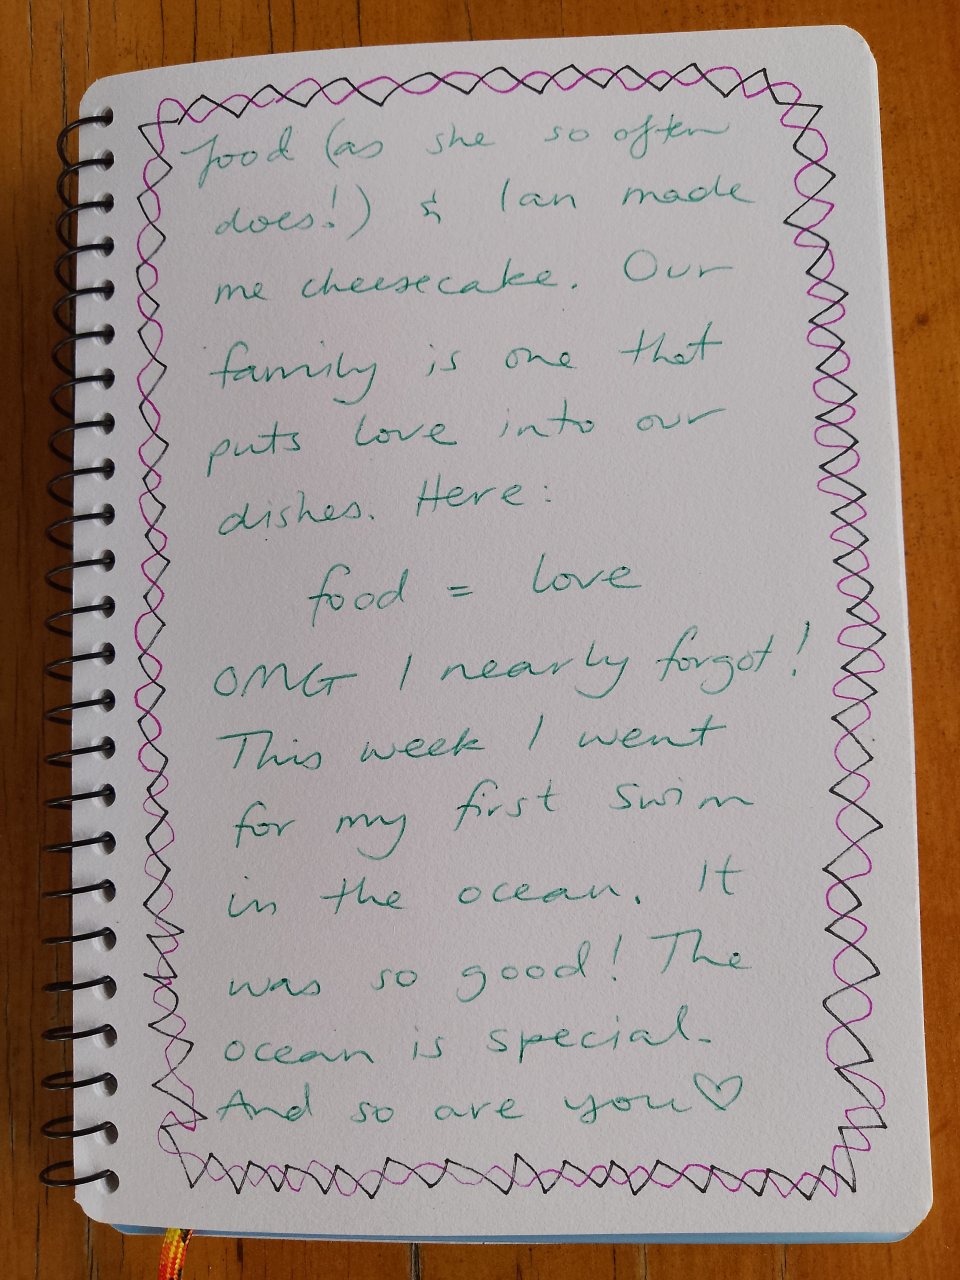 food (as she so often
does!) & Ian made
me cheesecake. Our
family is one that
puts love into our
dishes. Here:
food = love
OMG I nearly forgot!
This week I went
for my first swim
in the ocean. It
was so good! The
ocean is special.
And so are you♡